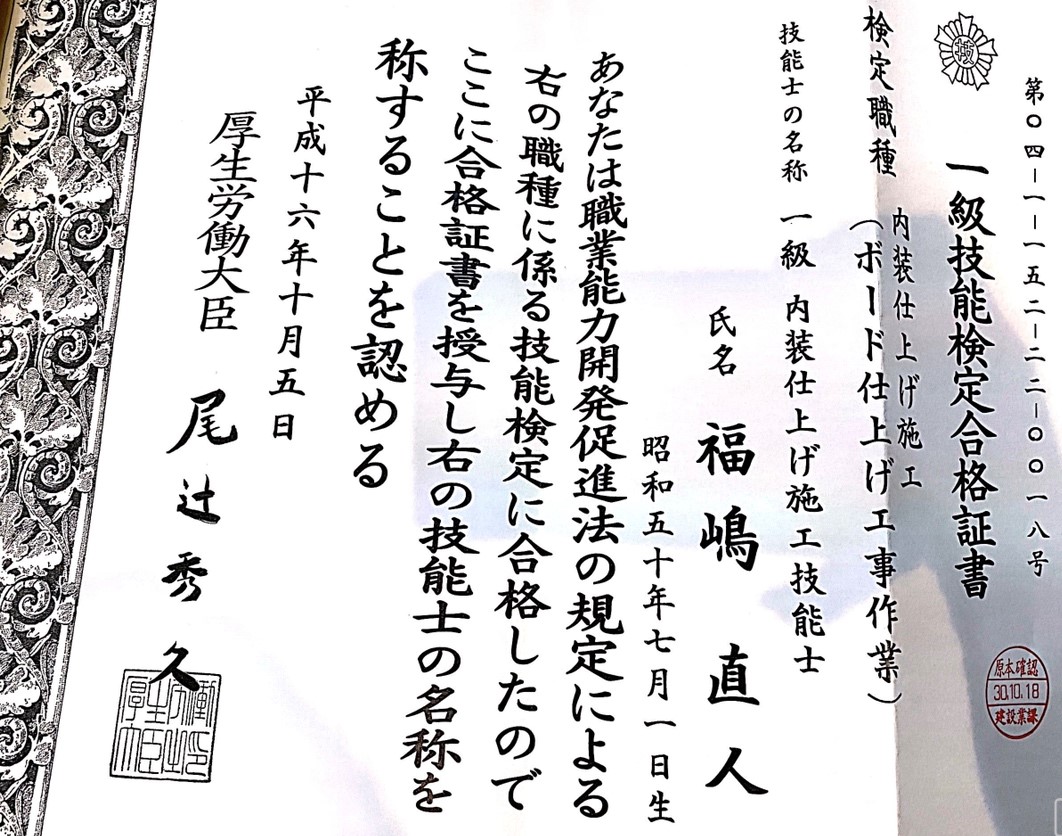 第〇四-一-一五二-二二-〇〇一八号
技
一級技能検定合格証書
検定職種 内装仕上げ施工
(ボード仕上げ工事作業)
技能士の名称 一級 内装仕上げ施工技能士
氏名 福嶋 直人
昭和五十年七月一日生
あなたは職業能力開発促進法の規定による
右の職種に係る技能検定に合格したので
ここに合格証書を授与し右の技能士の名称を
称することを認める
平成十六年十月五日
厚生労働大臣 尾辻秀久
厚生労働大臣之印
原本確認
30.10.18
建設業課